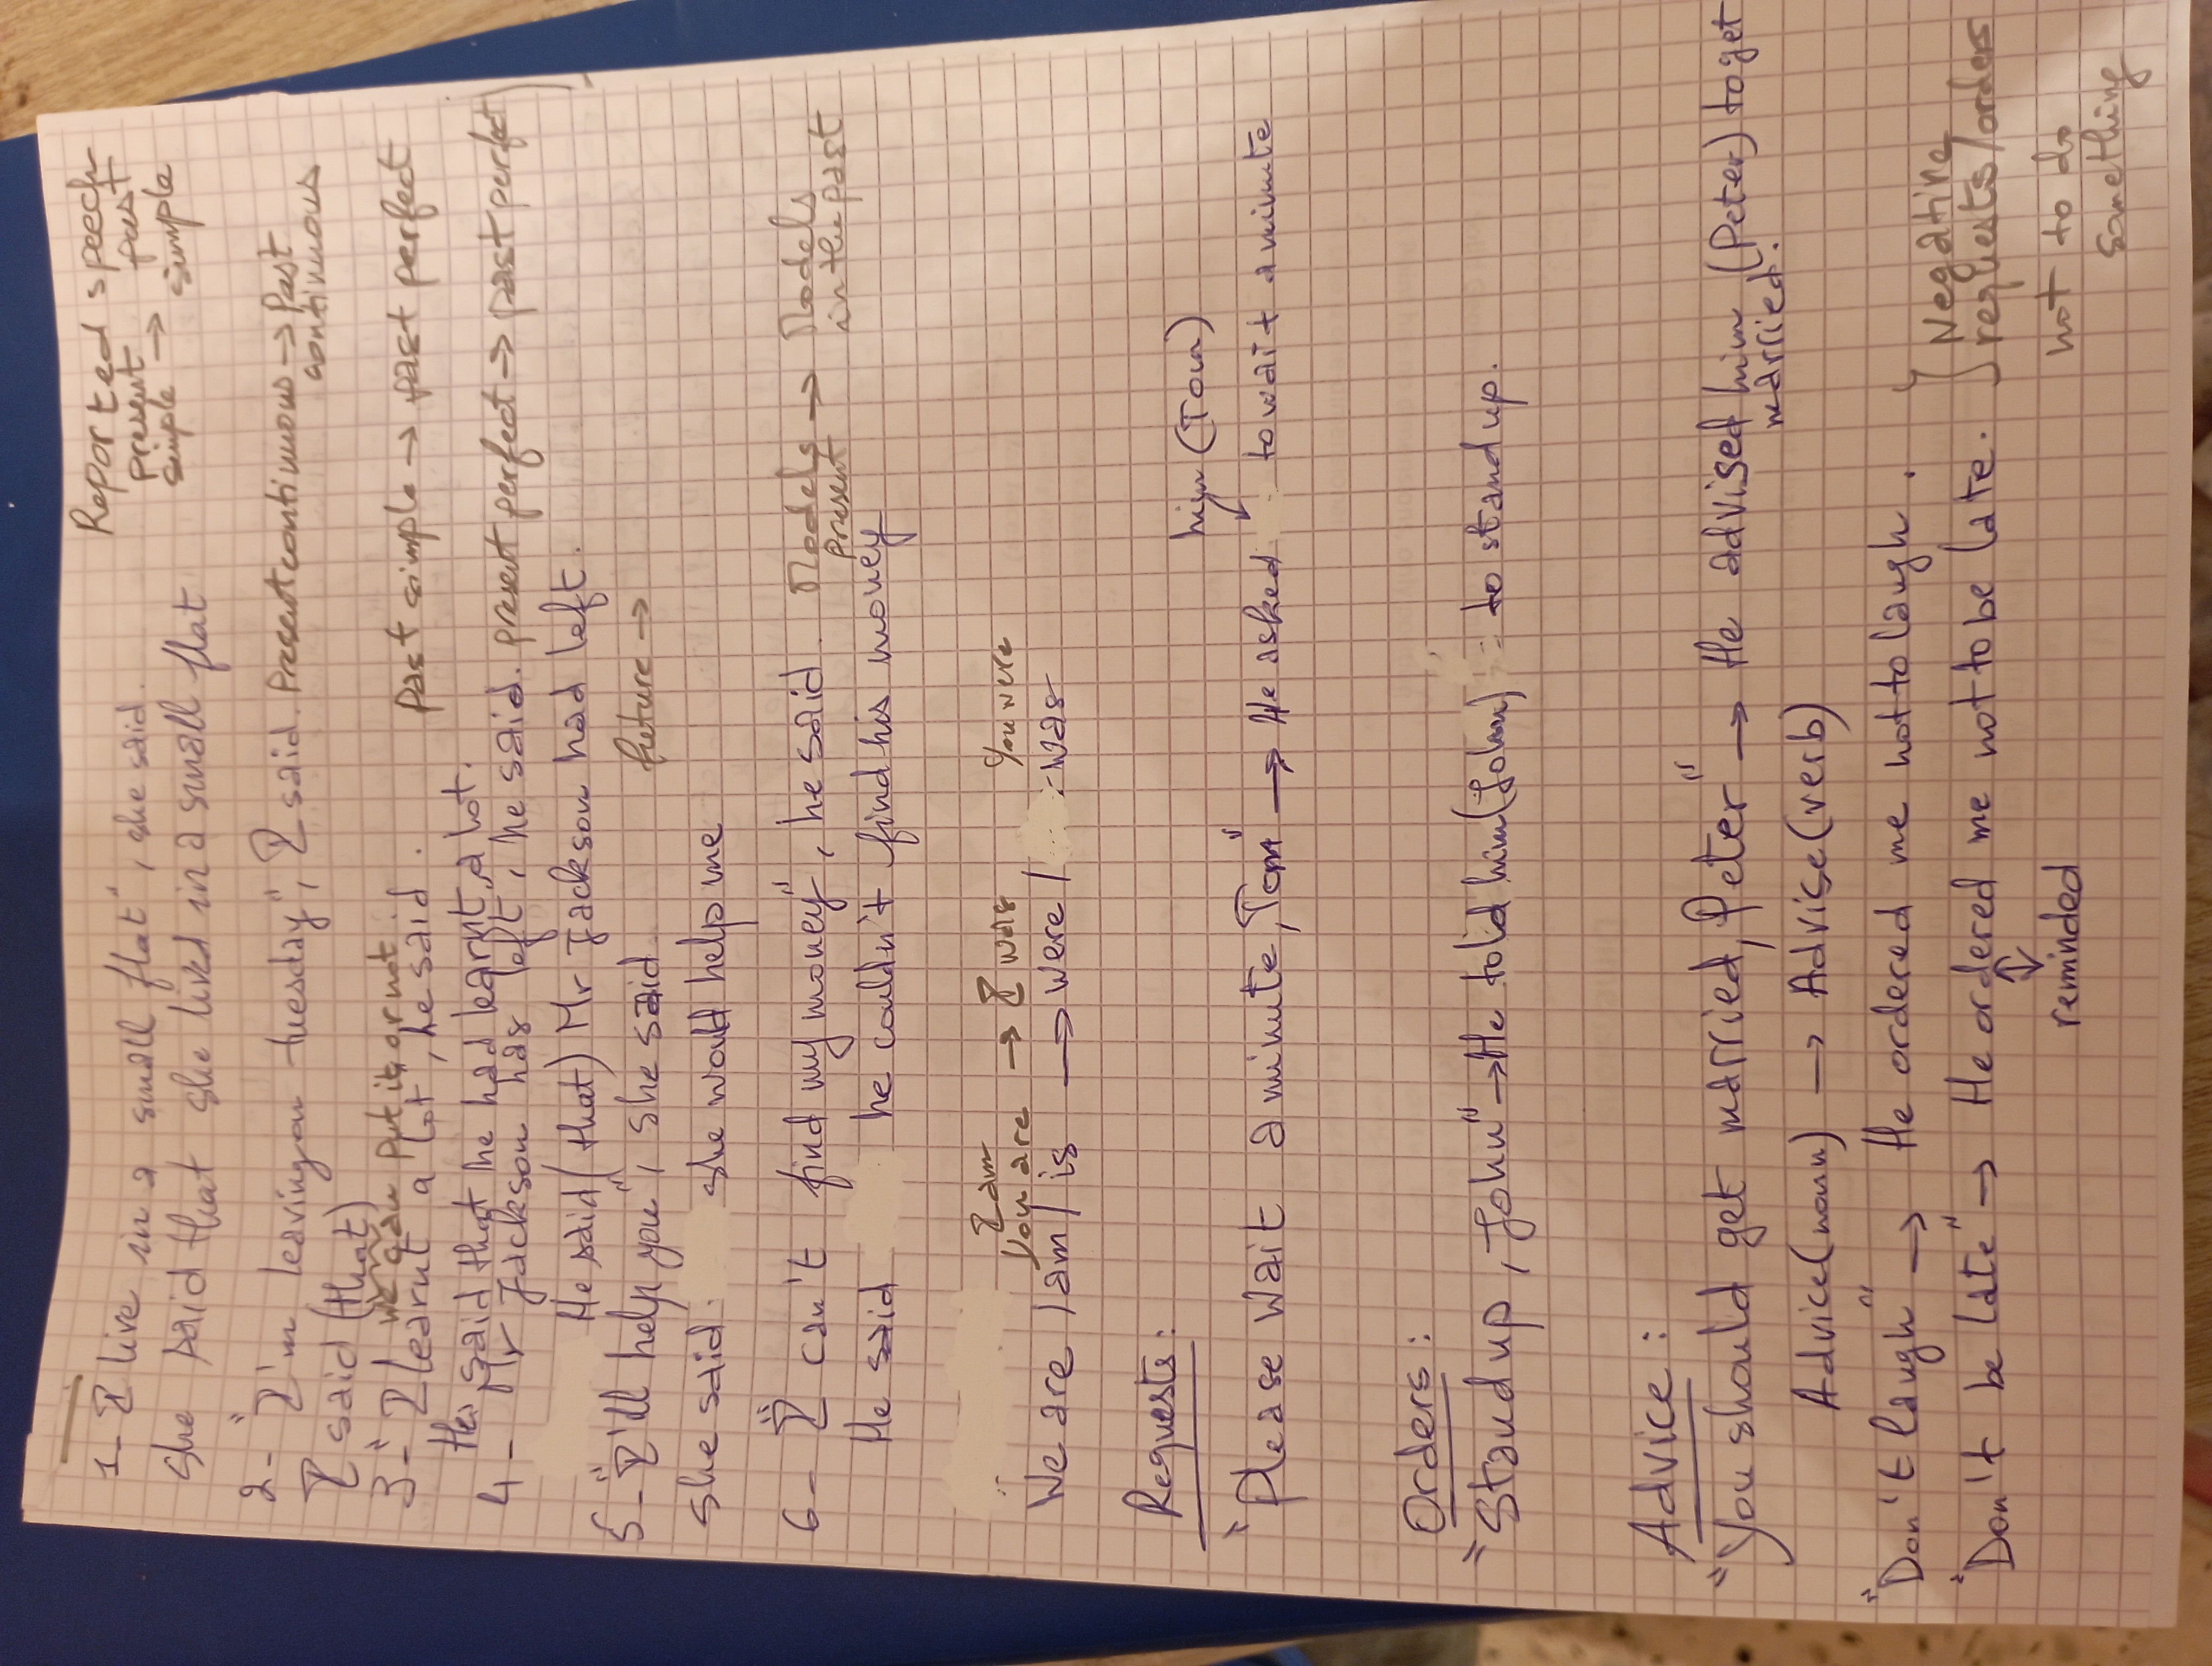 Reported speech
1- I live in a small flat", she said. present simple → past simple
She said that she lived in a small flat
2- "I'm leaving on tuesday", I said. Present continuous → Past continuous
I said (that)
we can put it or not
3- "I learnt a lot, he said. Past simple → past perfect
He said that he had learnt a lot.
4- Mr Jackson has left, he said. present perfect → past perfect
He said (that) Mr Jackson had left.
5- "I'll help you", she said. future →
She said she would help me
6- "I can't find my money", he said. Models present → Models in the past
He said he couldn't find his money
I am
you are → I was you were
We are / am / is → were / was
Requests:
"Please wait a minute, Tom" → He asked to wait a minute
him (Tom)
Orders:
"Stand up, John" → He told him (John) to stand up.
Advice:
"You should get married, Peter" → He advised him (Peter) to get
married.
Advice (noun) → Advise (verb)
"Don't laugh" → He ordered me not to laugh.
"Don't be late" → He ordered me not to be late.
reminded
Negating
requests/orders
not to do
something